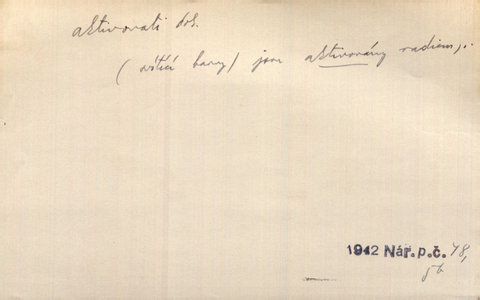 aktivovati dok.
(svítící barvy) jsou aktivovány radiem,.
1942 Nář. p. č. 48,
56